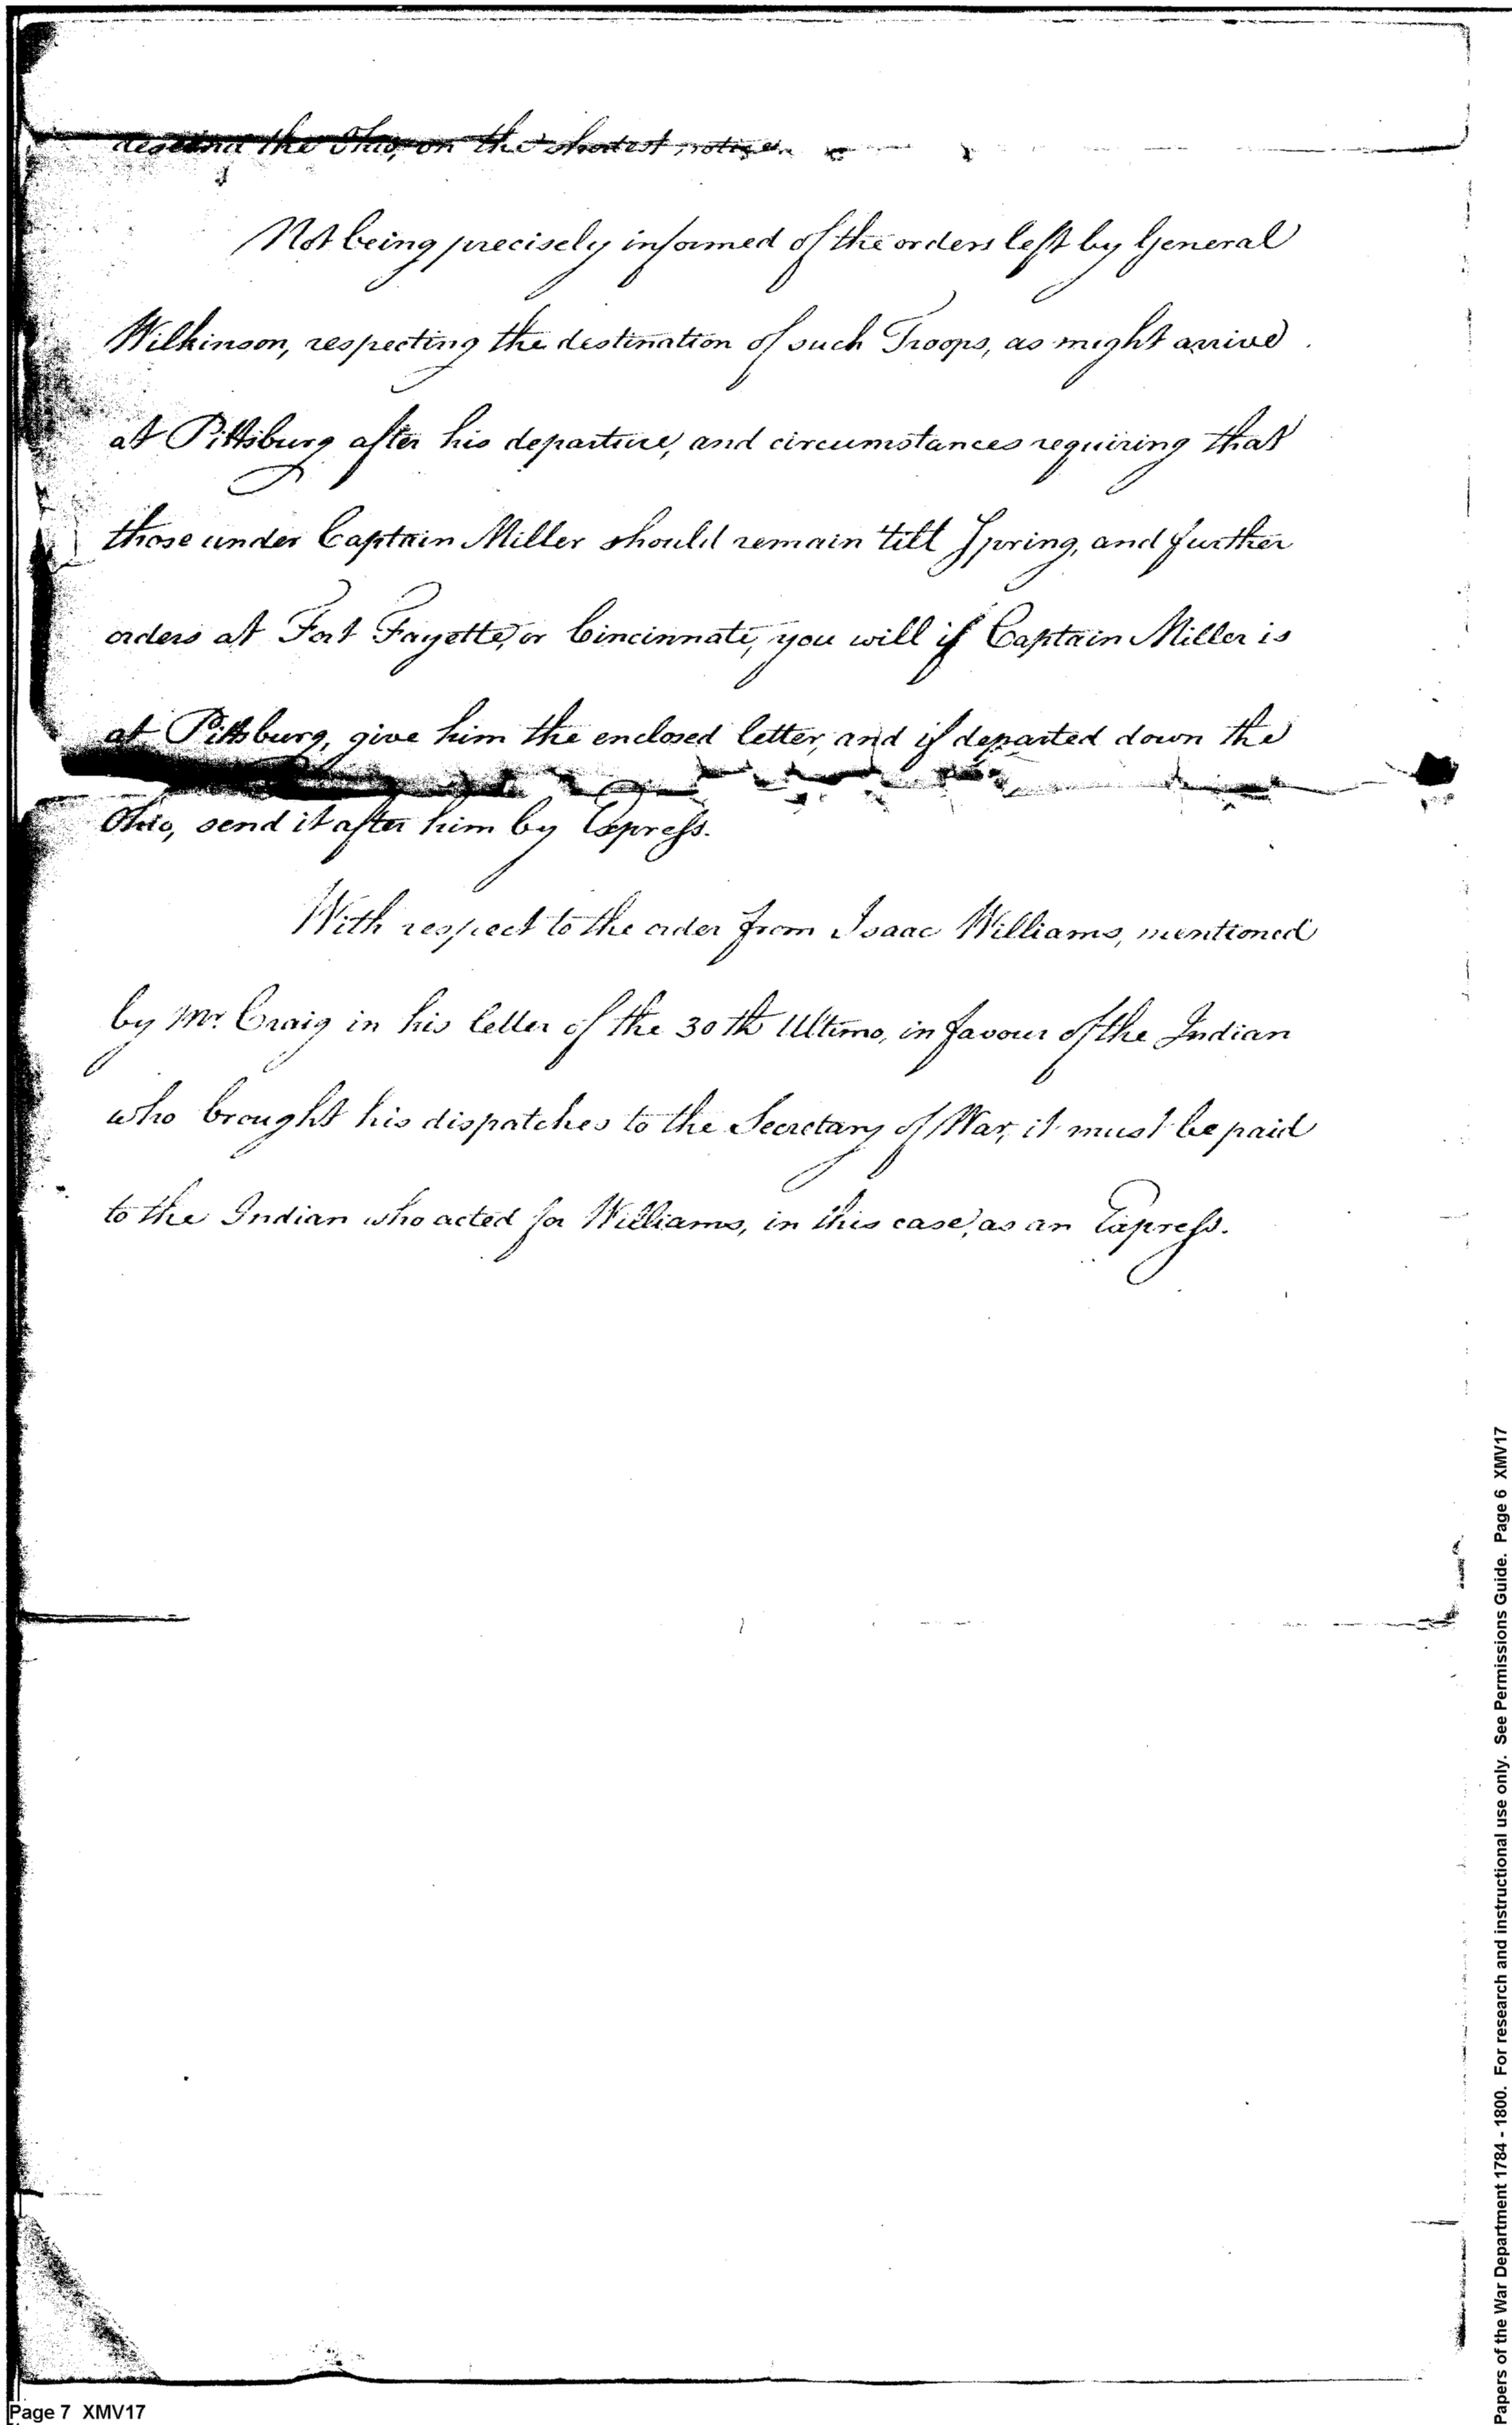 descend the Ohio, on the shortest notice.
Not being precisely informed of the orders left by General
Wilkinson, respecting the destination of such Troops, as might arrive
at Pittsburg after his departure, and circumstances requiring that
those under Captain Miller should remain till Spring, and further
orders at Fort Fayette, or Cincinnati, you will if Captain Miller is
at Pittsburg, give him the enclosed letter, and if departed down the
Ohio, send it after him by Express.
With respect to the order from Isaac Williams, mentioned
by Mr. Craig in his letter of the 30th Ultimo, in favour of the Indian
who brought his dispatches to the Secretary of War, it must be paid
to the Indian who acted for Williams, in this case, as an Express.
Page 7 XMV17
Papers of the War Department 1784 - 1800. For research and instructional use only. See Permissions Guide. Page 6 XMV17